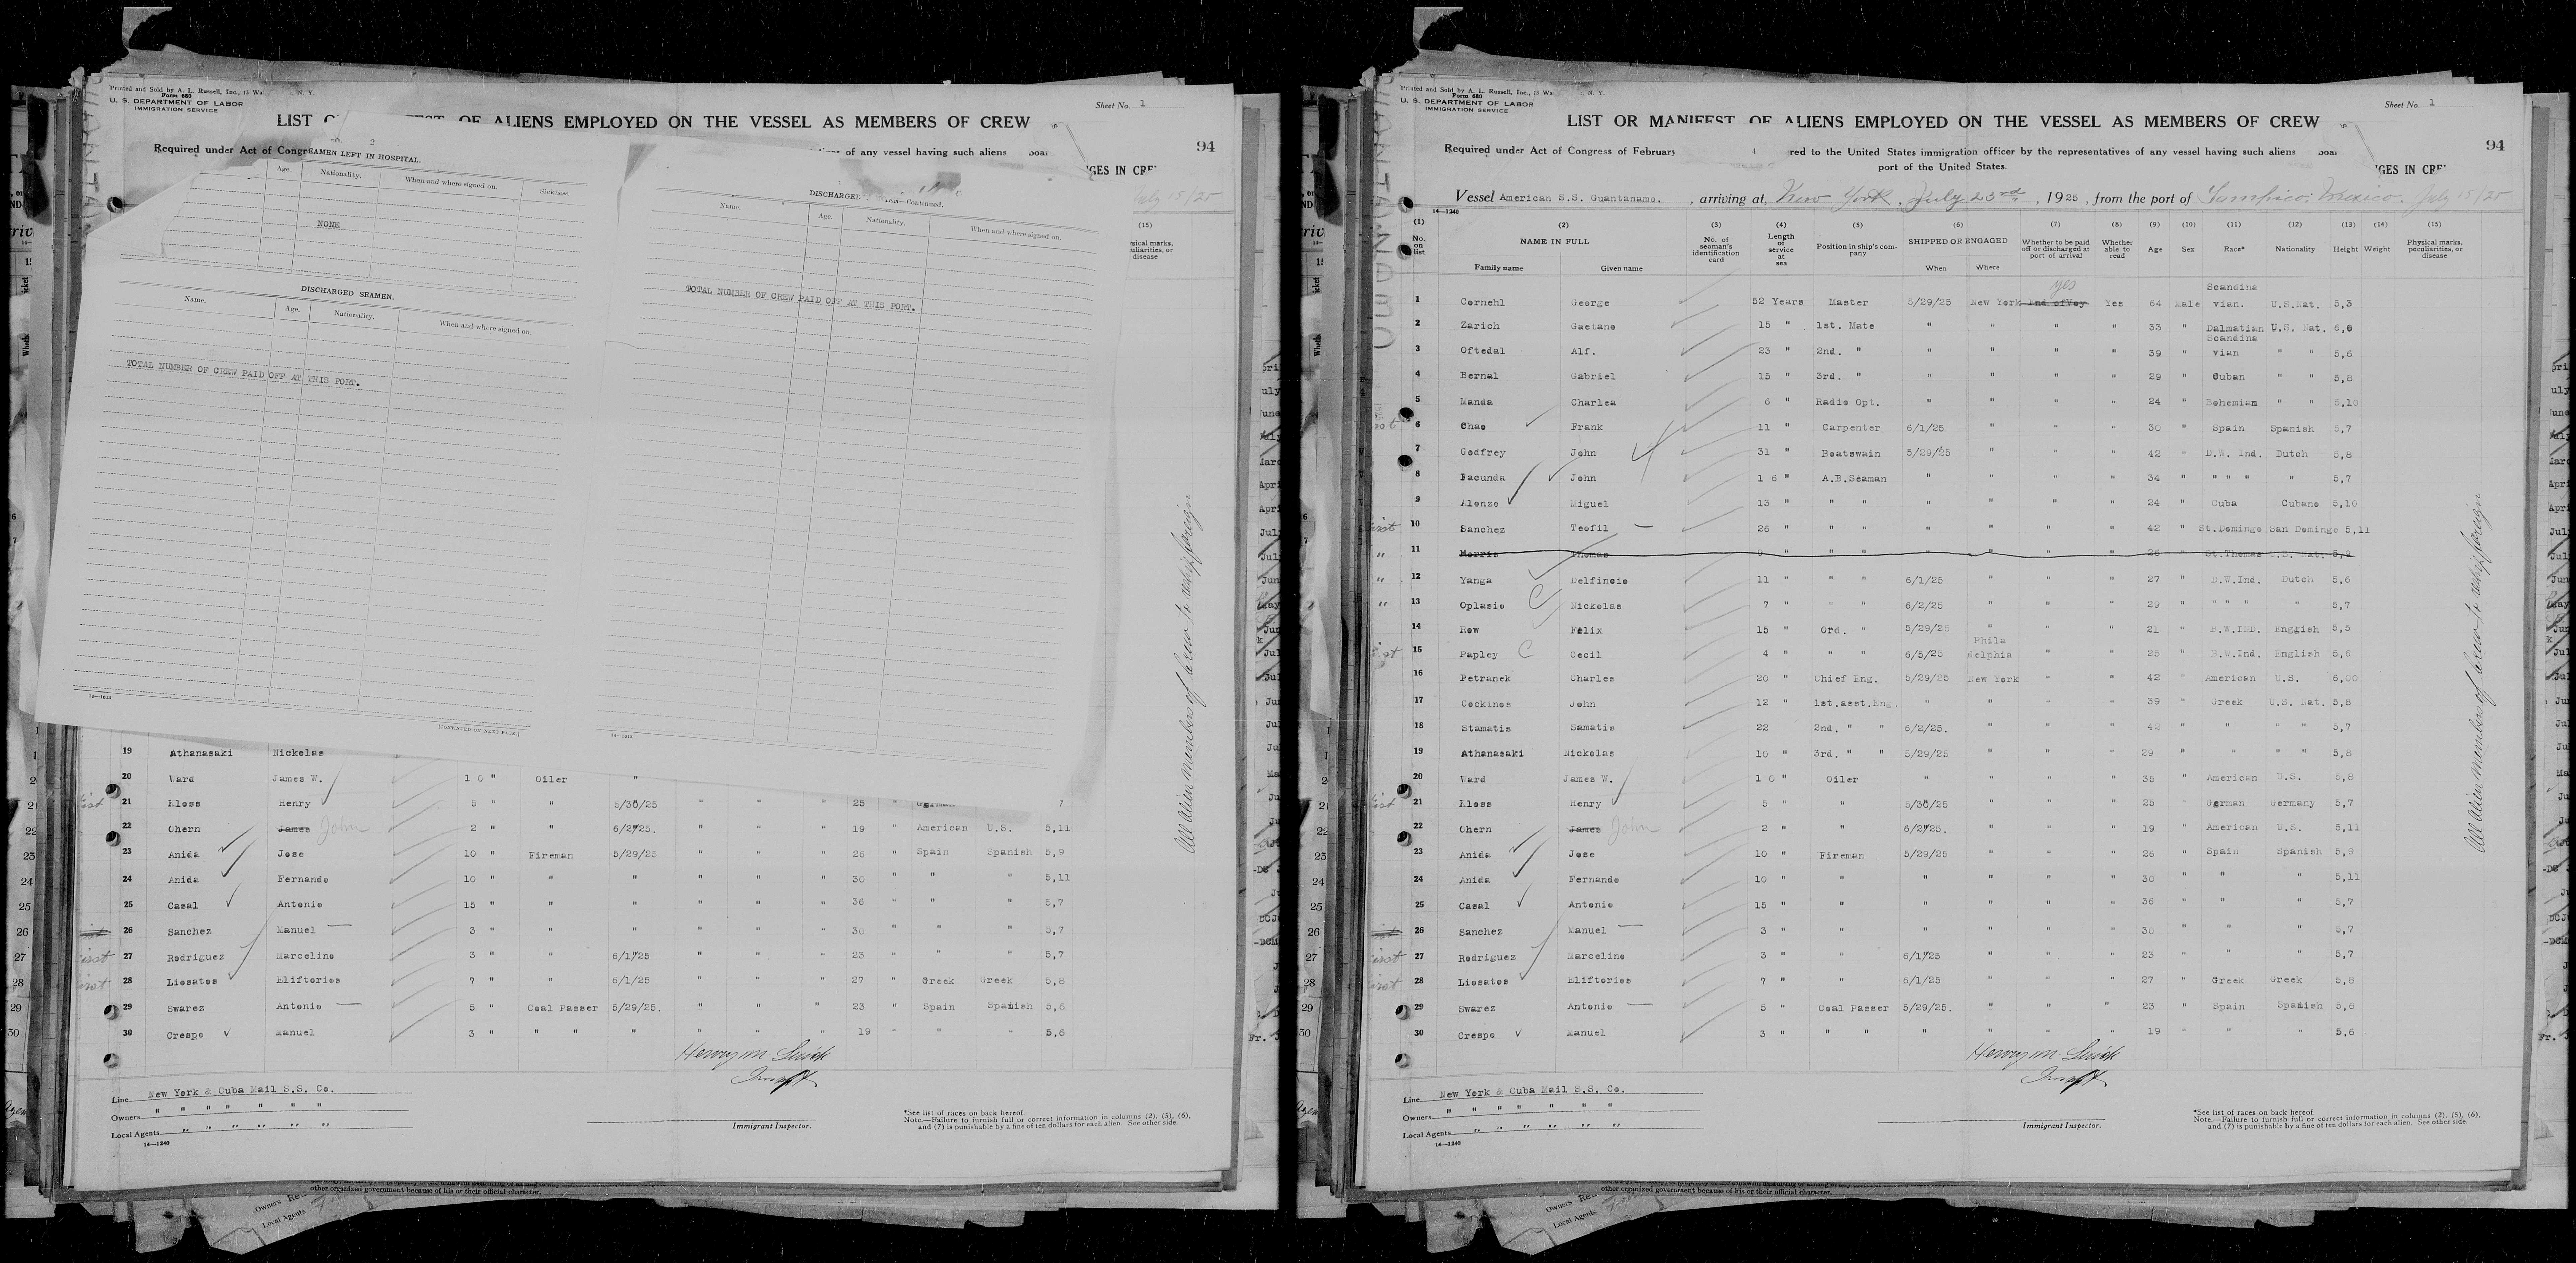 Printed and Sold by A. L. Russell, Inc., 13 Wa N. Y.
Form 680
U. S. DEPARTMENT OF LABOR
IMMIGRATION SERVICE
Sheet No. 1
LIST OF ALIENS EMPLOYED ON THE VESSEL AS MEMBERS OF CREW
94
Required under Act of Congr
of any vessel having such aliens
GES IN CRE
2
SEAMEN LEFT IN HOSPITAL.
Age. Nationality. When and where signed on. Sickness.
NONE
DISCHARGED SEAMEN.
Name. Age. Nationality. When and where signed on.
TOTAL NUMBER OF CREW PAID OFF AT THIS PORT.
14—1623
[CONTINUED ON NEXT PAGE.]
DISCHARGED —Continued.
Name. Age. Nationality. When and where signed on.
TOTAL NUMBER OF CREW PAID OFF AT THIS PORT.
July 15/25
(15)
sical marks,
culiarities, or
disease
19 Athanasaki Nickolas
20 Ward James W. 1 0 " Oiler "
21 Kloss Henry 5 " " 5/30/25 " " " 25 " German 7
22 Ohern James John 2 " " 6/2/25. " " " 19 " American U.S. 5,11
23 Anida Jose 10 " Fireman 5/29/25 " " " 26 " Spain Spanish 5,9
24 Anida Fernando 10 " " " " " " 30 " " " 5,11
25 Casal Antonio 15 " " " " " " 36 " " " 5,7
26 Sanchez Manuel 3 " " " " " " 30 " " " 5,7
27 Rodriguez Marcelino 3 " " 6/1/25 " " " 23 " " " 5,7
28 Liosatos Eliftories 7 " " 6/1/25 " " " 27 " Greek Greek 5,8
29 Swarez Antonio 5 " Coal Passer 5/29/25. " " " 23 " Spain Spanish 5,6
30 Crespo Manuel 3 " " " " " " " 19 " " " 5,6
All alien members of crew to reship foreign
Line New York & Cuba Mail S.S. Co.
Owners " " " " " " "
Local Agents " " " " " "
14—1240
Immigrant Inspector.
*See list of races on back hereof.
Note.—Failure to furnish full or correct information in columns (2), (5), (6),
and (7) is punishable by a fine of ten dollars for each alien. See other side.
other organized government because of his or their official character.
Owners
Local Agents
Printed and Sold by A. L. Russell, Inc., 13 Wa N. Y.
Form 680
U. S. DEPARTMENT OF LABOR
IMMIGRATION SERVICE
Sheet No. 1
LIST OR MANIFEST OF ALIENS EMPLOYED ON THE VESSEL AS MEMBERS OF CREW
94
Required under Act of Congress of February red to the United States immigration officer by the representatives of any vessel having such aliens
port of the United States.
GES IN CRE
Vessel American S.S. Guantanamo. , arriving at, New York , July 23rd , 1925 , from the port of Tampico. Mexico. July 15/25
14—1240
(1) (2) (3) (4) (5) (6) (7) (8) (9) (10) (11) (12) (13) (14) (15)
No. on list NAME IN FULL No. of seaman's identification card Length of service at sea Position in ship's company SHIPPED OR ENGAGED Whether to be paid off or discharged at port of arrival Whether able to read Age Sex Race* Nationality Height Weight Physical marks, peculiarities, or disease
Family name Given name When Where
yes
1 Cornehl George 52 Years Master 5/29/25 New York End of Voy Yes 64 Male Scandina vian. U.S.Nat. 5,3
2 Zarich Gaetano 15 " 1st. Mate " " " " 33 " Dalmatian U.S. Nat. 6,0
3 Oftedal Alf. 23 " 2nd. " " " " " 39 " Scandina vian " " 5,6
4 Bernal Gabriel 15 " 3rd. " " " " " 29 " Cuban " " 5,8
5 Manda Charles 6 " Radio Opt. " " " " 24 " Bohemian " " 5,10
6 Chao Frank 11 " Carpenter 6/1/25 " " " 30 " Spain Spanish 5,7
7 Godfrey John 31 " Boatswain 5/29/25 " " " 42 " D.W. Ind. Dutch 5,8
8 Facunda John 1 6 " A.B.Seaman " " " " 34 " " " " " 5,7
9 Alonzo Miguel 13 " " " " " " " 24 " Cuba Cubano 5,10
10 Sanchez Teofil 26 " " " " " " " 42 " St.Domingo San Domingo 5,11
11 Morris Thomas 9 " " " " " " " 26 " St.Thomas U.S. Nat. 5,9
12 Yanga Delfincio 11 " " " 6/1/25 " " " 27 " D.W.Ind. Dutch 5,6
13 Oplasio Nickolas 7 " " " 6/2/25 " " " 29 " " " " " 5,7
14 Row Felix 15 " Ord. " 5/29/25 " " " 21 " B.W.IND. Enggish 5,5
15 Papley Cecil 4 " " " 6/5/25 Phila delphia " " 25 " B.W.Ind. English 5,6
16 Petranek Charles 20 " Chief Eng. 5/29/25 New York " " 42 " American U.S. 6,00
17 Cockinos John 12 " 1st.asst.Eng. " " " " 39 " Greek U.S. Nat. 5,8
18 Stamatis Samatis 22 2nd. " " 6/2/25. " " " 42 " " " " 5,7
19 Athanasaki Nickolas 10 " 3rd. " " 5/29/25 " " " 29 " " " " 5,8
20 Ward James W. 1 0 " Oiler " " " " 35 " American U.S. 5,8
21 Kloss Henry 5 " " 5/30/25 " " " 25 " German Germany 5,7
22 Ohern James John 2 " " 6/2/25. " " " 19 " American U.S. 5,11
23 Anida Jose 10 " Fireman 5/29/25 " " " 26 " Spain Spanish 5,9
24 Anida Fernando 10 " " " " " " 30 " " " 5,11
25 Casal Antonio 15 " " " " " " 36 " " " 5,7
26 Sanchez Manuel 3 " " " " " " 30 " " " 5,7
27 Rodriguez Marcelino 3 " " 6/1/25 " " " 23 " " " 5,7
28 Liosatos Eliftories 7 " " 6/1/25 " " " 27 " Greek Greek 5,8
29 Swarez Antonio 5 " Coal Passer 5/29/25. " " " 23 " Spain Spanish 5,6
30 Crespo Manuel 3 " " " " " " " 19 " " " 5,6
All alien members of crew to reship foreign
Line New York & Cuba Mail S.S. Co.
Owners " " " " " " "
Local Agents " " " " " "
14—1240
Immigrant Inspector.
*See list of races on back hereof.
Note.—Failure to furnish full or correct information in columns (2), (5), (6),
and (7) is punishable by a fine of ten dollars for each alien. See other side.
other organized government because of his or their official character.
Owners
Local Agents